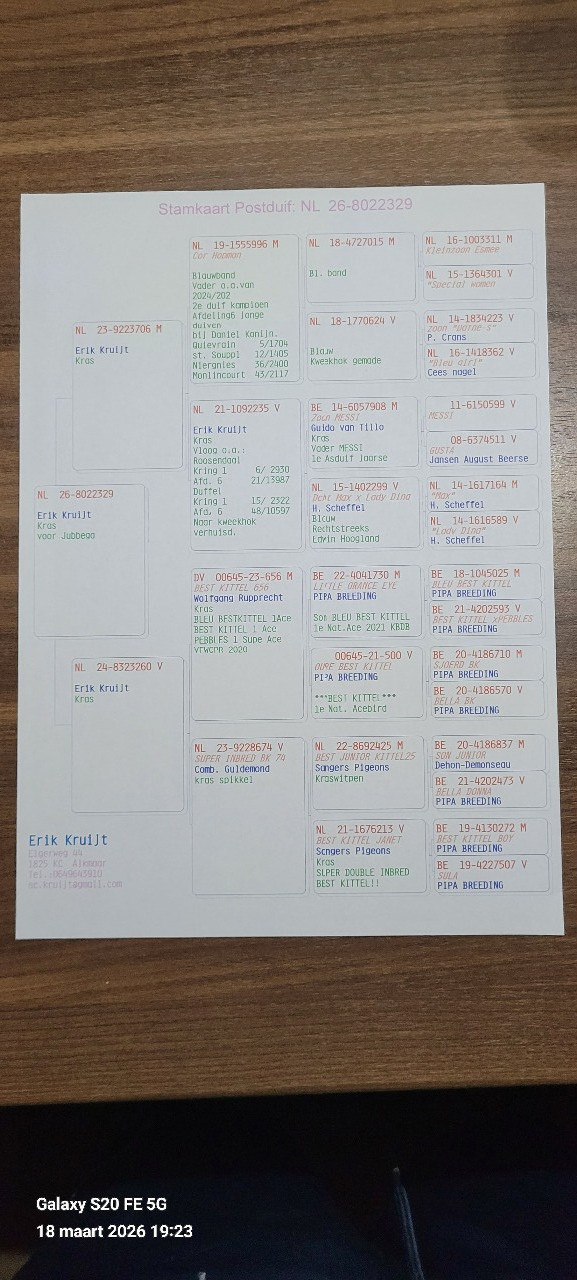 Stamkaart Postduif: NL 26-8022329
NL 26-8022329
Erik Kruijt
Kras
voor Jubbega
NL 23-9223706 M
Erik Kruijt
Kras
NL 24-8323260 V
Erik Kruijt
Kras
NL 19-1555996 M
Cor Hopman
Blauwband
Vader o.a.van
2024/202
2e duif kampioen
Afdeling6 jonge
duiven
bij Daniel Konijn.
Quievrain 5/1704
st. Souppl 12/1405
Niergnies 36/2400
Monlincourt 43/2117
NL 21-1092235 V
Erik Kruijt
Kras
Vloog o.a.:
Roosendaal
Kring 1 6/ 2930
Afd. 6 21/13987
Duffel
Kring 1 15/ 2322
Afd. 6 48/10597
Naar kweekhok
verhuisd.
DV 00645-23-656 M
BEST KITTEL 656
Wolfgang Rupprecht
Kras
BLEU BESTKITTEL 1Ace
BEST KITTEL 1 Ace
PEBBLES 1 Supe Ace
2020
NL 23-9228674 V
SUPER INBRED BK 74
Comb. Guldemond
kras spikkel
NL 18-4727015 M
Bl. band
NL 18-1770624 V
Blauw
Kweekhok gemade
BE 14-6057908 M
Zoon MESSI
Guido van Tillo
Kras
Vader MESSI
1e Asduif Jaarse
NL 15-1402299 V
Dcht Max x Lady Dina
H. Scheffel
Blauw
Rechtstreeks
Edwin Hoogland
BE 22-4041730 M
LITTLE ORANGE EYE
PIPA BREEDING
Son BLEU BEST KITTEL
1e Nat.Ace 2021 KBDB
00645-21-500 V
OUPE BEST KITTEL
PIPA BREEDING
***BEST KITTEL***
1e Nat. Acebird
NL 22-8692425 M
BEST JUNIOR KITTEL25
Sangers Pigeons
Kraswitpen
NL 21-1676213 V
BEST KITTEL JANET
Sangers Pigeons
Kras
SUPER DOUBLE INBRED
BEST KITTEL!!
NL 16-1003311 M
Kleinzoon Esmee
NL 15-1364301 V
"Special women
NL 14-1834223 V
P. Crans
NL 16-1418362 V
"Bleu girl"
Cees nagel
11-6150599 V
MESSI
08-6374511 V
GUSTA
Jansen August Beerse
NL 14-1617164 M
"Max"
H. Scheffel
NL 14-1616589 V
"Lady Dina"
H. Scheffel
BE 18-1045025 M
BLEU BEST KITTEL
PIPA BREEDING
BE 21-4202593 V
BEST KITTEL xPEBBLES
PIPA BREEDING
BE 20-4186710 M
SJOERD BK
PIPA BREEDING
BE 20-4186570 V
BELLA BK
PIPA BREEDING
BE 20-4186837 M
SON JUNIOR
Dehon-Demonseau
BE 21-4202473 V
BELLA DONNA
PIPA BREEDING
BE 19-4130272 M
BEST KITTEL BOY
PIPA BREEDING
BE 19-4227507 V
SULA
PIPA BREEDING
Erik Kruijt
Eigerweg 44
1825 KC. Alkmaar
Tel.:0649643910
Galaxy S20 FE 5G
18 maart 2026 19:23